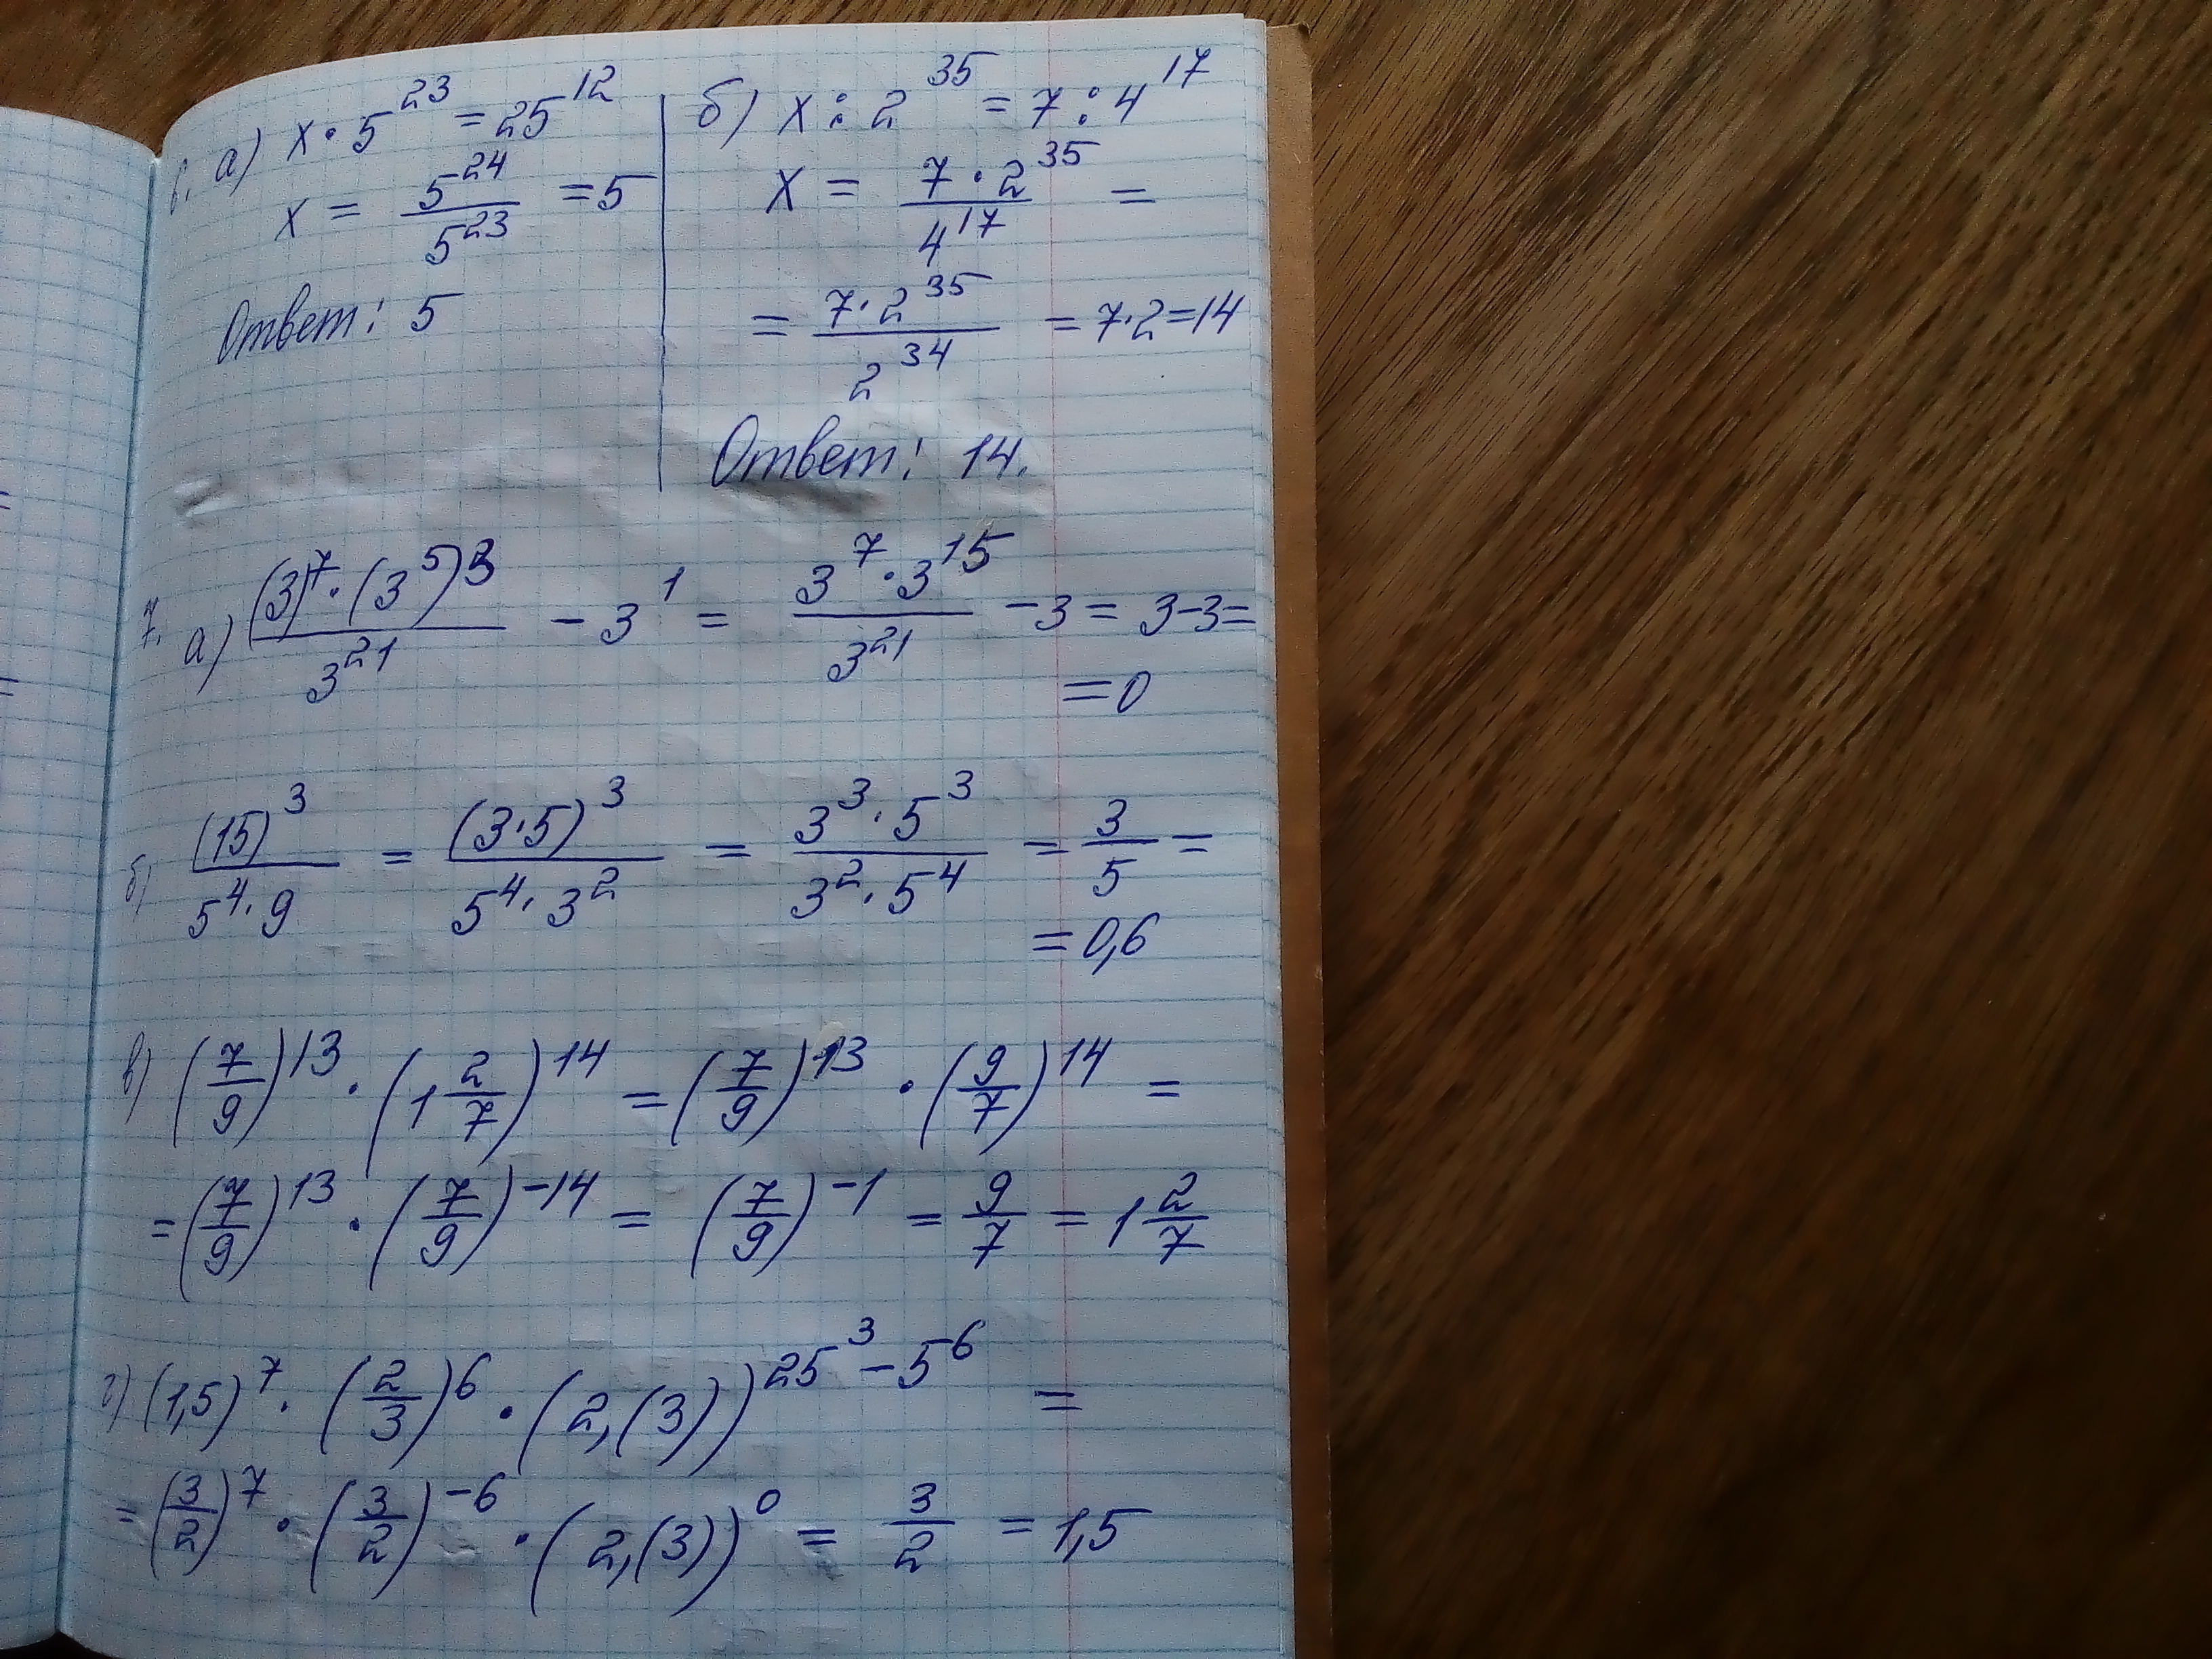 6. а) x · 5^23 = 25^12
x = 5^24 / 5^23 = 5
Ответ: 5
б) x : 2^35 = 7 : 4^17
x = 7 · 2^35 / 4^17 =
= 7 · 2^35 / 2^34 = 7 · 2 = 14
Ответ: 14.
7. а) (3)^7 · (3^5)^3 / 3^21 − 3^1 = 3^7 · 3^15 / 3^21 − 3 = 3 − 3 =
= 0
б) (15)^3 / 5^4 · 9 = (3 · 5)^3 / 5^4 · 3^2 = 3^3 · 5^3 / 3^2 · 5^4 = 3/5 =
= 0,6
в) (7/9)^13 · (1 2/7)^14 = (7/9)^13 · (9/7)^14 =
= (7/9)^13 · (7/9)^−14 = (7/9)^−1 = 9/7 = 1 2/7
г) (1,5)^7 · (2/3)^6 · (2,(3))^(25^3 − 5^6) =
= (3/2)^7 · (3/2)^−6 · (2,(3))^0 = 3/2 = 1,5